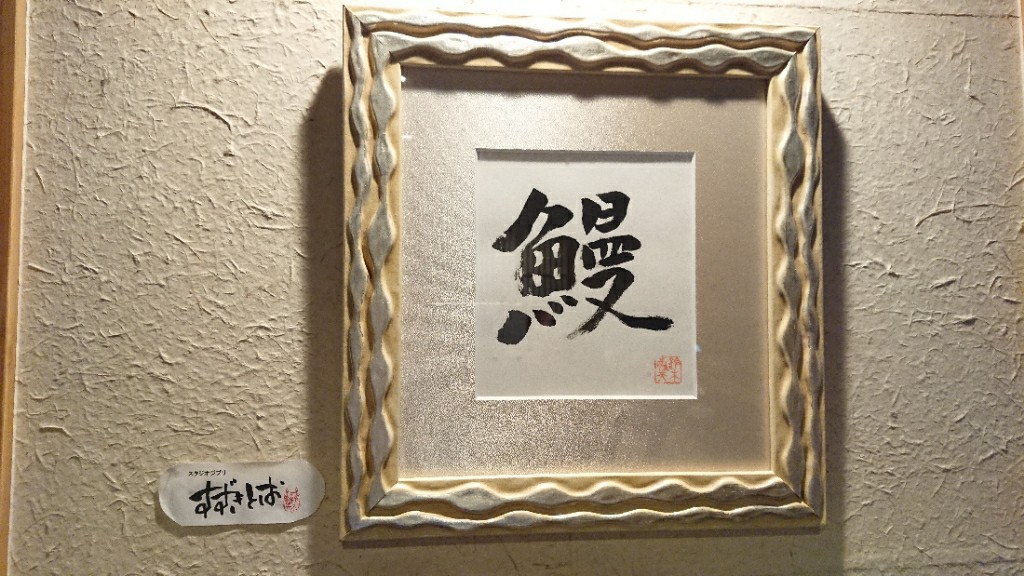 鰻
スタジオジブリ
すずきとしお